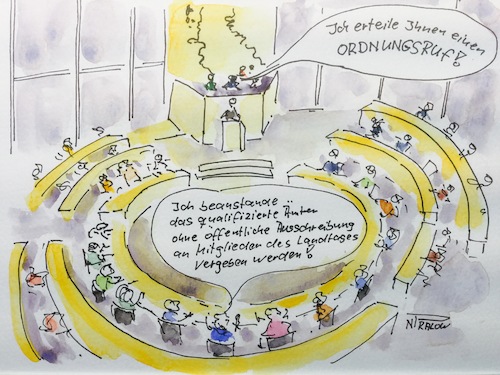 Ich erteile Ihnen einen
ORDNUNGSRUF!
Ich beanstande
das qualifizierte Ämter
ohne öffentliche Ausschreibung
an Mitglieder des Landtages
vergeben werden!
NIRALOW